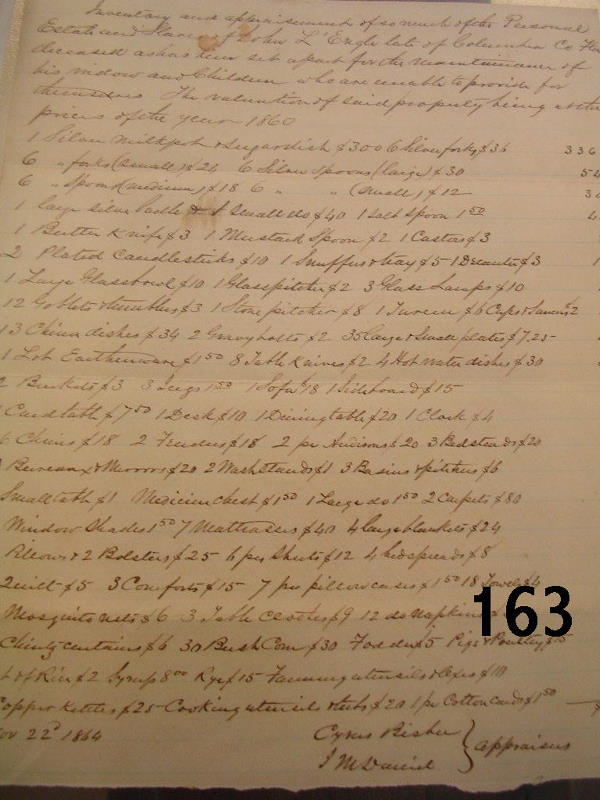 Inventory and appraisement of so much of the Personal
Estate and Slaves of John L'Engle late of Columbia Co Fla
deceased as has been set apart for the maintenance of
his widow and Children who are unable to provide for
themselves The valuation of said property being at the
prices of the year 1860
1 Silver Milkpot & Sugardish $300 6 Silver forks $36 336
6 " forks (small) $24 6 Silver Spoons (large) $30 54
6 " Spoons (medium) $18 6 " " (Small) $12 30
1 large silver ladle & 1 Small do $40 1 Salt Spoon 1 50 4
1 Butter Knife $3 1 Mustard Spoon $2 1 Castors $3
2 Plated Candlesticks $10 1 Snuffers & tray $5 1 Decanter $3
1 Large Glassbowl $10 1 Glasspitcher $2 3 Glass Lamps $10
12 Goblets & tumblers $3 1 Stone pitcher $8 1 Tureen $6 Cups & Saucers $2
13 China dishes $34 2 Gravyboats $2 35 large & Small plates $7.25
1 Lot Earthenware $1 50 8 Table Knives $2 4 Hot water dishes $30
2 Buckets $3 3 Jugs 1 50 1 Sofa $18 1 Sideboard $15
Cardtable $7 50 1 Desk $10 1 Diningtable $20 1 Clock $4
6 Chairs $18 2 Fenders $18 2 pr Andirons $20 3 Bedsteads $20
Bureaux & Mirrors $20 2 Wash Stands $1 3 Basins & pitchers $6
Small table $1 Medicine chest $1 50 1 Large do 1 50 2 Carpets $80
Window Shades 1 50 7 Mattrasses $40 4 large blankets $24
Pillows & 2 Bolsters $25 6 prs Sheets $12 4 bedspreads $8
Quilt $5 3 Comforts $15 7 prs pillowcases $1 50 18 Towels $4
Mosquito nets $6 3 Table Clothes $9 12 do Napkins
Chintz curtains $6 30 Bush Corn $30 Fodder $5 Pigs & Poultry $15
of Rice $2 Syrup 8 00 Rye $15 Farming utensils & Axes $10
Copper Kettles $25 Cooking utensils & tubs $20 1 pr Cotton cards $1 50
Nov 22d 1864
Cyrus Bisbee
J M Daniel } appraisers
163